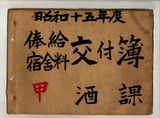 昭和十五年度
俸給
宿舍料
交付簿
甲
酒課